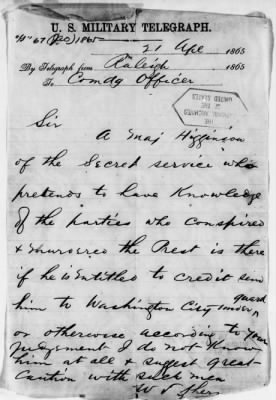 U. S. MILITARY TELEGRAPH.
21 Apl 1865
By Telegraph from Raleigh 1865
To Comdg Officer
Sir
A Maj Higginson
of the Secret service who
pretends to have Knowledge
of the parties who conspired
& Murdered the Prest is there
if he is Entitled to credit send
him to Washington City under guard
or otherwise according to your
Judgement I do not Know
him at all & suggest great
Caution with such men
W T Sher